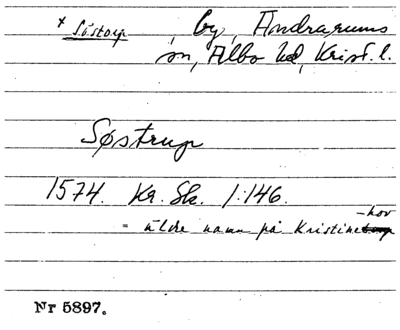 × Söstorp, by, Andrarums
sn, Albo hd, Krist. l.
Søstrup
1574. Kr. Sk. 1:146.
= äldre namn på Kristinehov
Nr 5897.